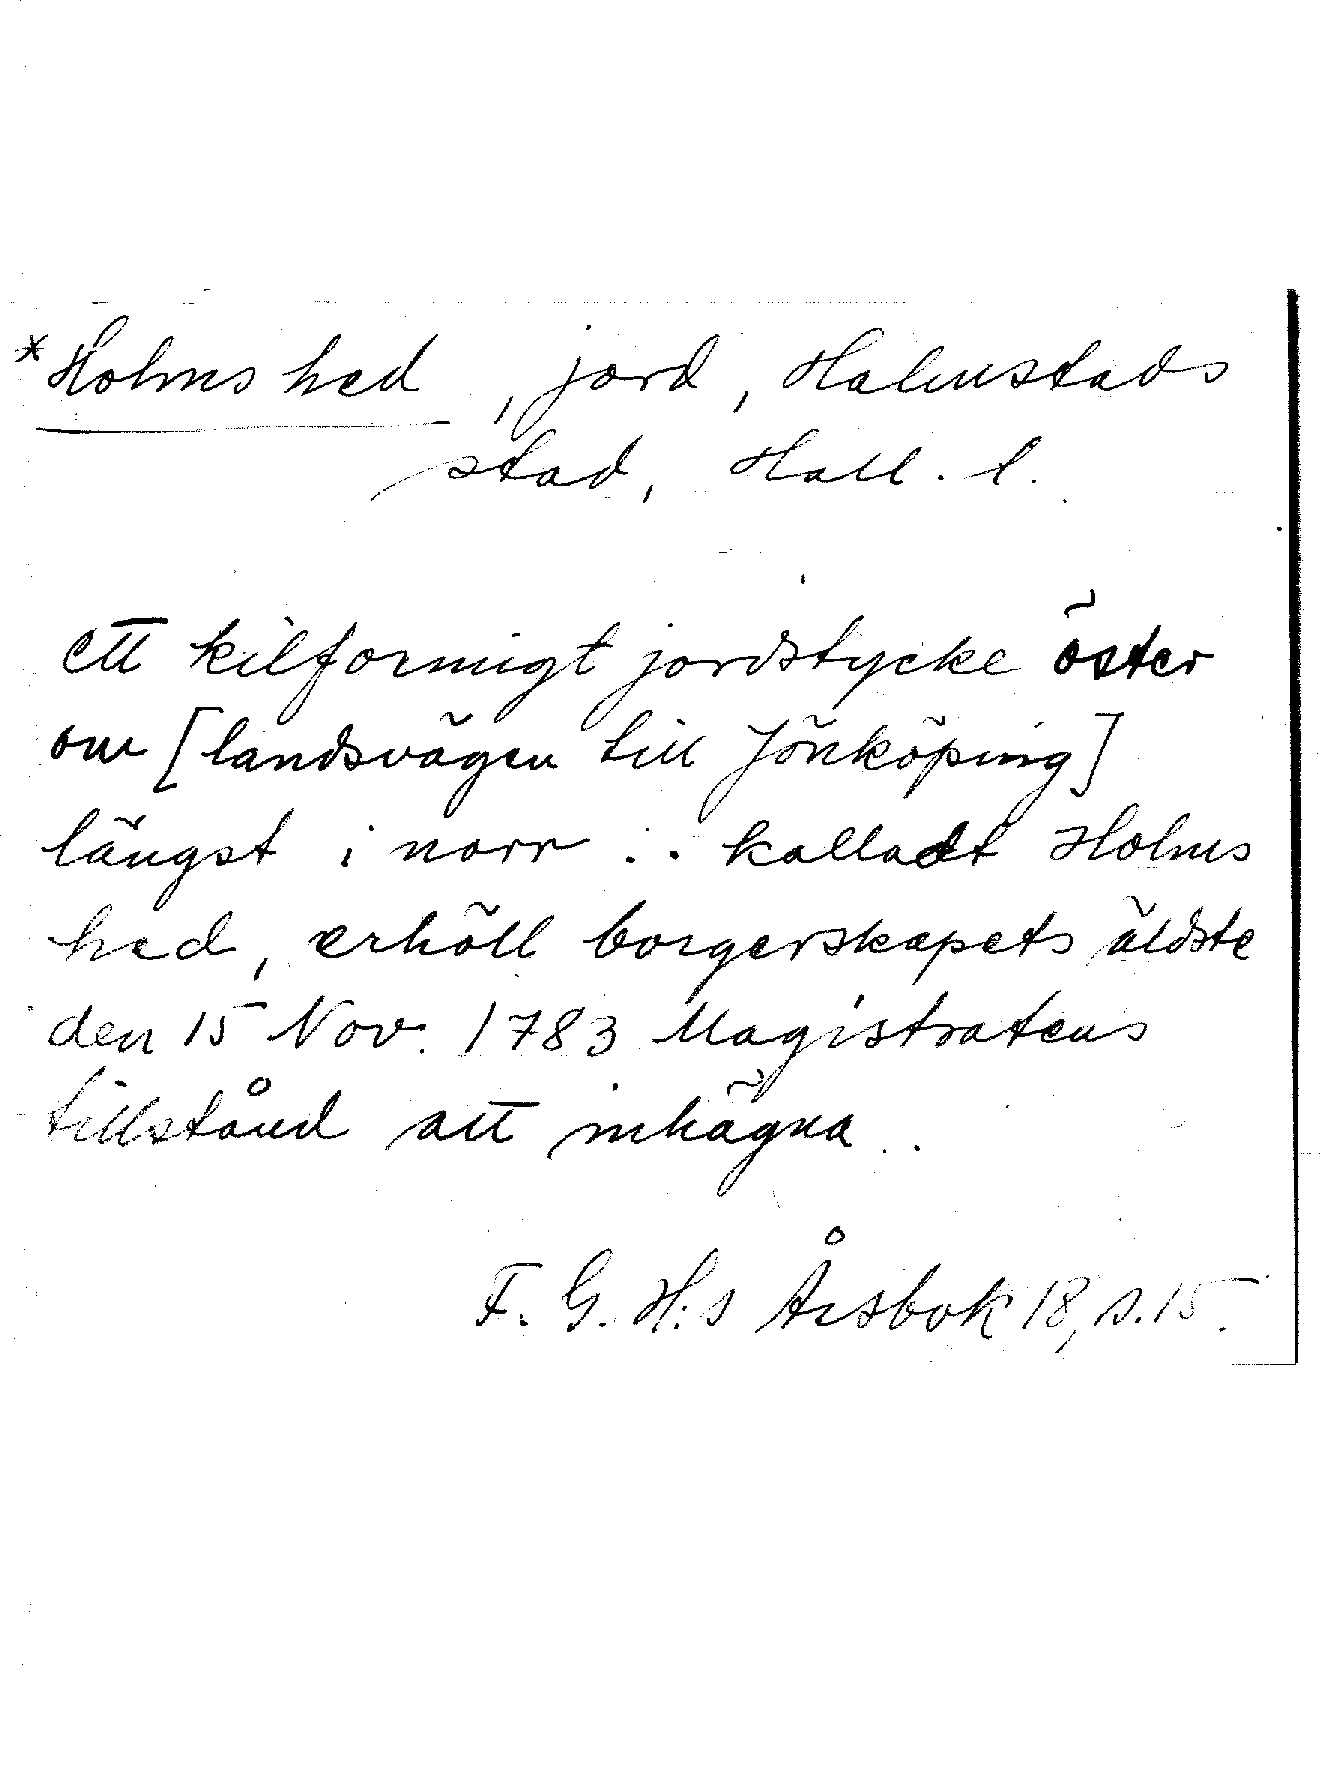 *Holms hed, jord, Halmstads
stad, Hall. l.
ett kilformigt jordstycke öster
om [landsvägen till Jönköping]
längst i norr .. kalladt Holms
hed, erhöll borgerskapets äldste
den 15 Nov. 1783 Magistratens
tillstånd att inhägna..
F. G. H:s Årsbok 18, s. 15.